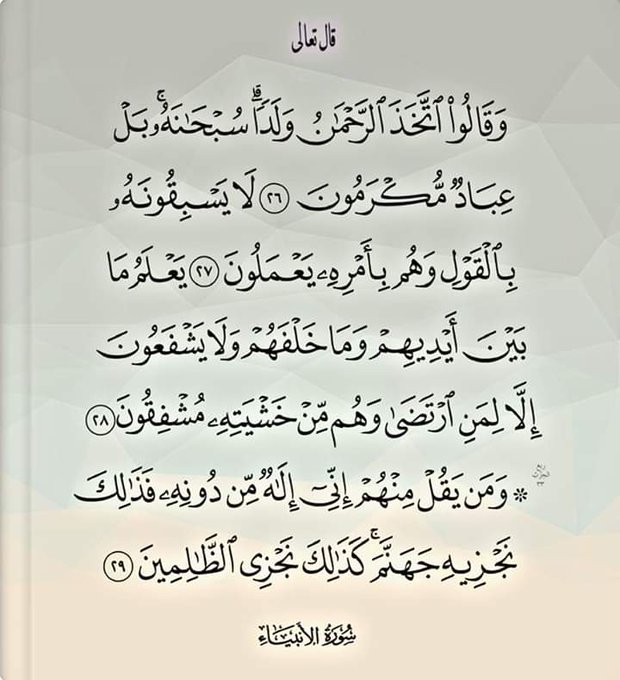 قال تعالى
وَقَالُواْ ٱتَّخَذَ ٱلرَّحْمَٰنُ وَلَدٗاۗ سُبْحَٰنَهُۥۚ بَلْ
عِبَادٞ مُّكْرَمُونَ ٢٦ لَا يَسْبِقُونَهُۥ
بِٱلْقَوْلِ وَهُم بِأَمْرِهِۦ يَعْمَلُونَ ٢٧ يَعْلَمُ مَا
بَيْنَ أَيْدِيهِمْ وَمَا خَلْفَهُمْ وَلَا يَشْفَعُونَ
إِلَّا لِمَنِ ٱرْتَضَىٰ وَهُم مِّنْ خَشْيَتِهِۦ مُشْفِقُونَ ٢٨
۞ وَمَن يَقُلْ مِنْهُمْ إِنِّيٓ إِلَٰهٞ مِّن دُونِهِۦ فَذَٰلِكَ
نَجْزِيهِ جَهَنَّمَۚ كَذَٰلِكَ نَجْزِي ٱلظَّٰلِمِينَ ٢٩
سُورَةُ الأَنبِيَاءِ